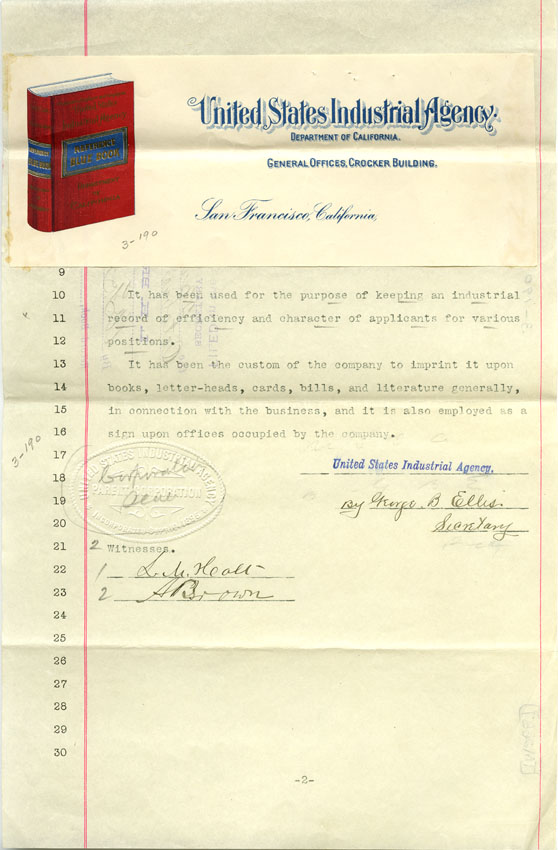 United States Industrial Agency.
DEPARTMENT OF CALIFORNIA.
GENERAL OFFICES, CROCKER BUILDING.
San Francisco, California,
BLUE BOOK
3-190
9
10 It has been used for the purpose of keeping an industrial
11 record of efficiency and character of applicants for various
12 positions.
13 It has been the custom of the company to imprint it upon
14 books, letter-heads, cards, bills, and literature generally,
15 in connection with the business, and it is also employed as a
16 sign upon offices occupied by the company.
3-190
17 United States Industrial Agency.
18 Corporation
19 Seal By George B. Ellis
20 Secretary
21 2 Witnesses.
22 1 L. M. Holt
23 2 A Brown
24
25
26
27
28
29
30
-2-